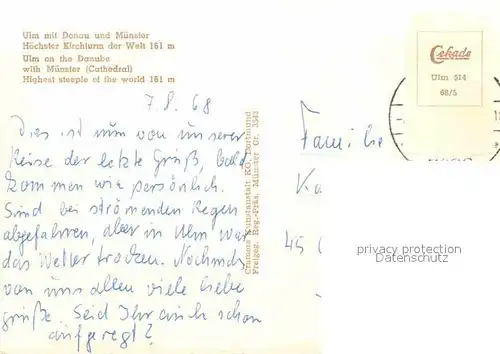 Ulm mit Donau und Münster
Höchster Kirchturm der Welt 161 m
Ulm on the Danube
with Münster (Cathedral)
Highest steeple of the world 161 m
Cekade
Ulm 514
68/5
7.8.68
Dies ist nun von unserer
Reise der letzte Gruß, bald
kommen wir persönlich.
Sind bei strömenden Regen
abgefahren, aber in Ulm war
das Wetter trocken. Nochmals
von uns allen viele liebe
Grüße. Seid Ihr auch schon
aufgeregt?
Cramers Kunstanstalt KG, Dortmund
Freigeg. Reg.-Präs. Münster Gr. 3543
Familie
Ka
45
privacy protection
Datenschutz